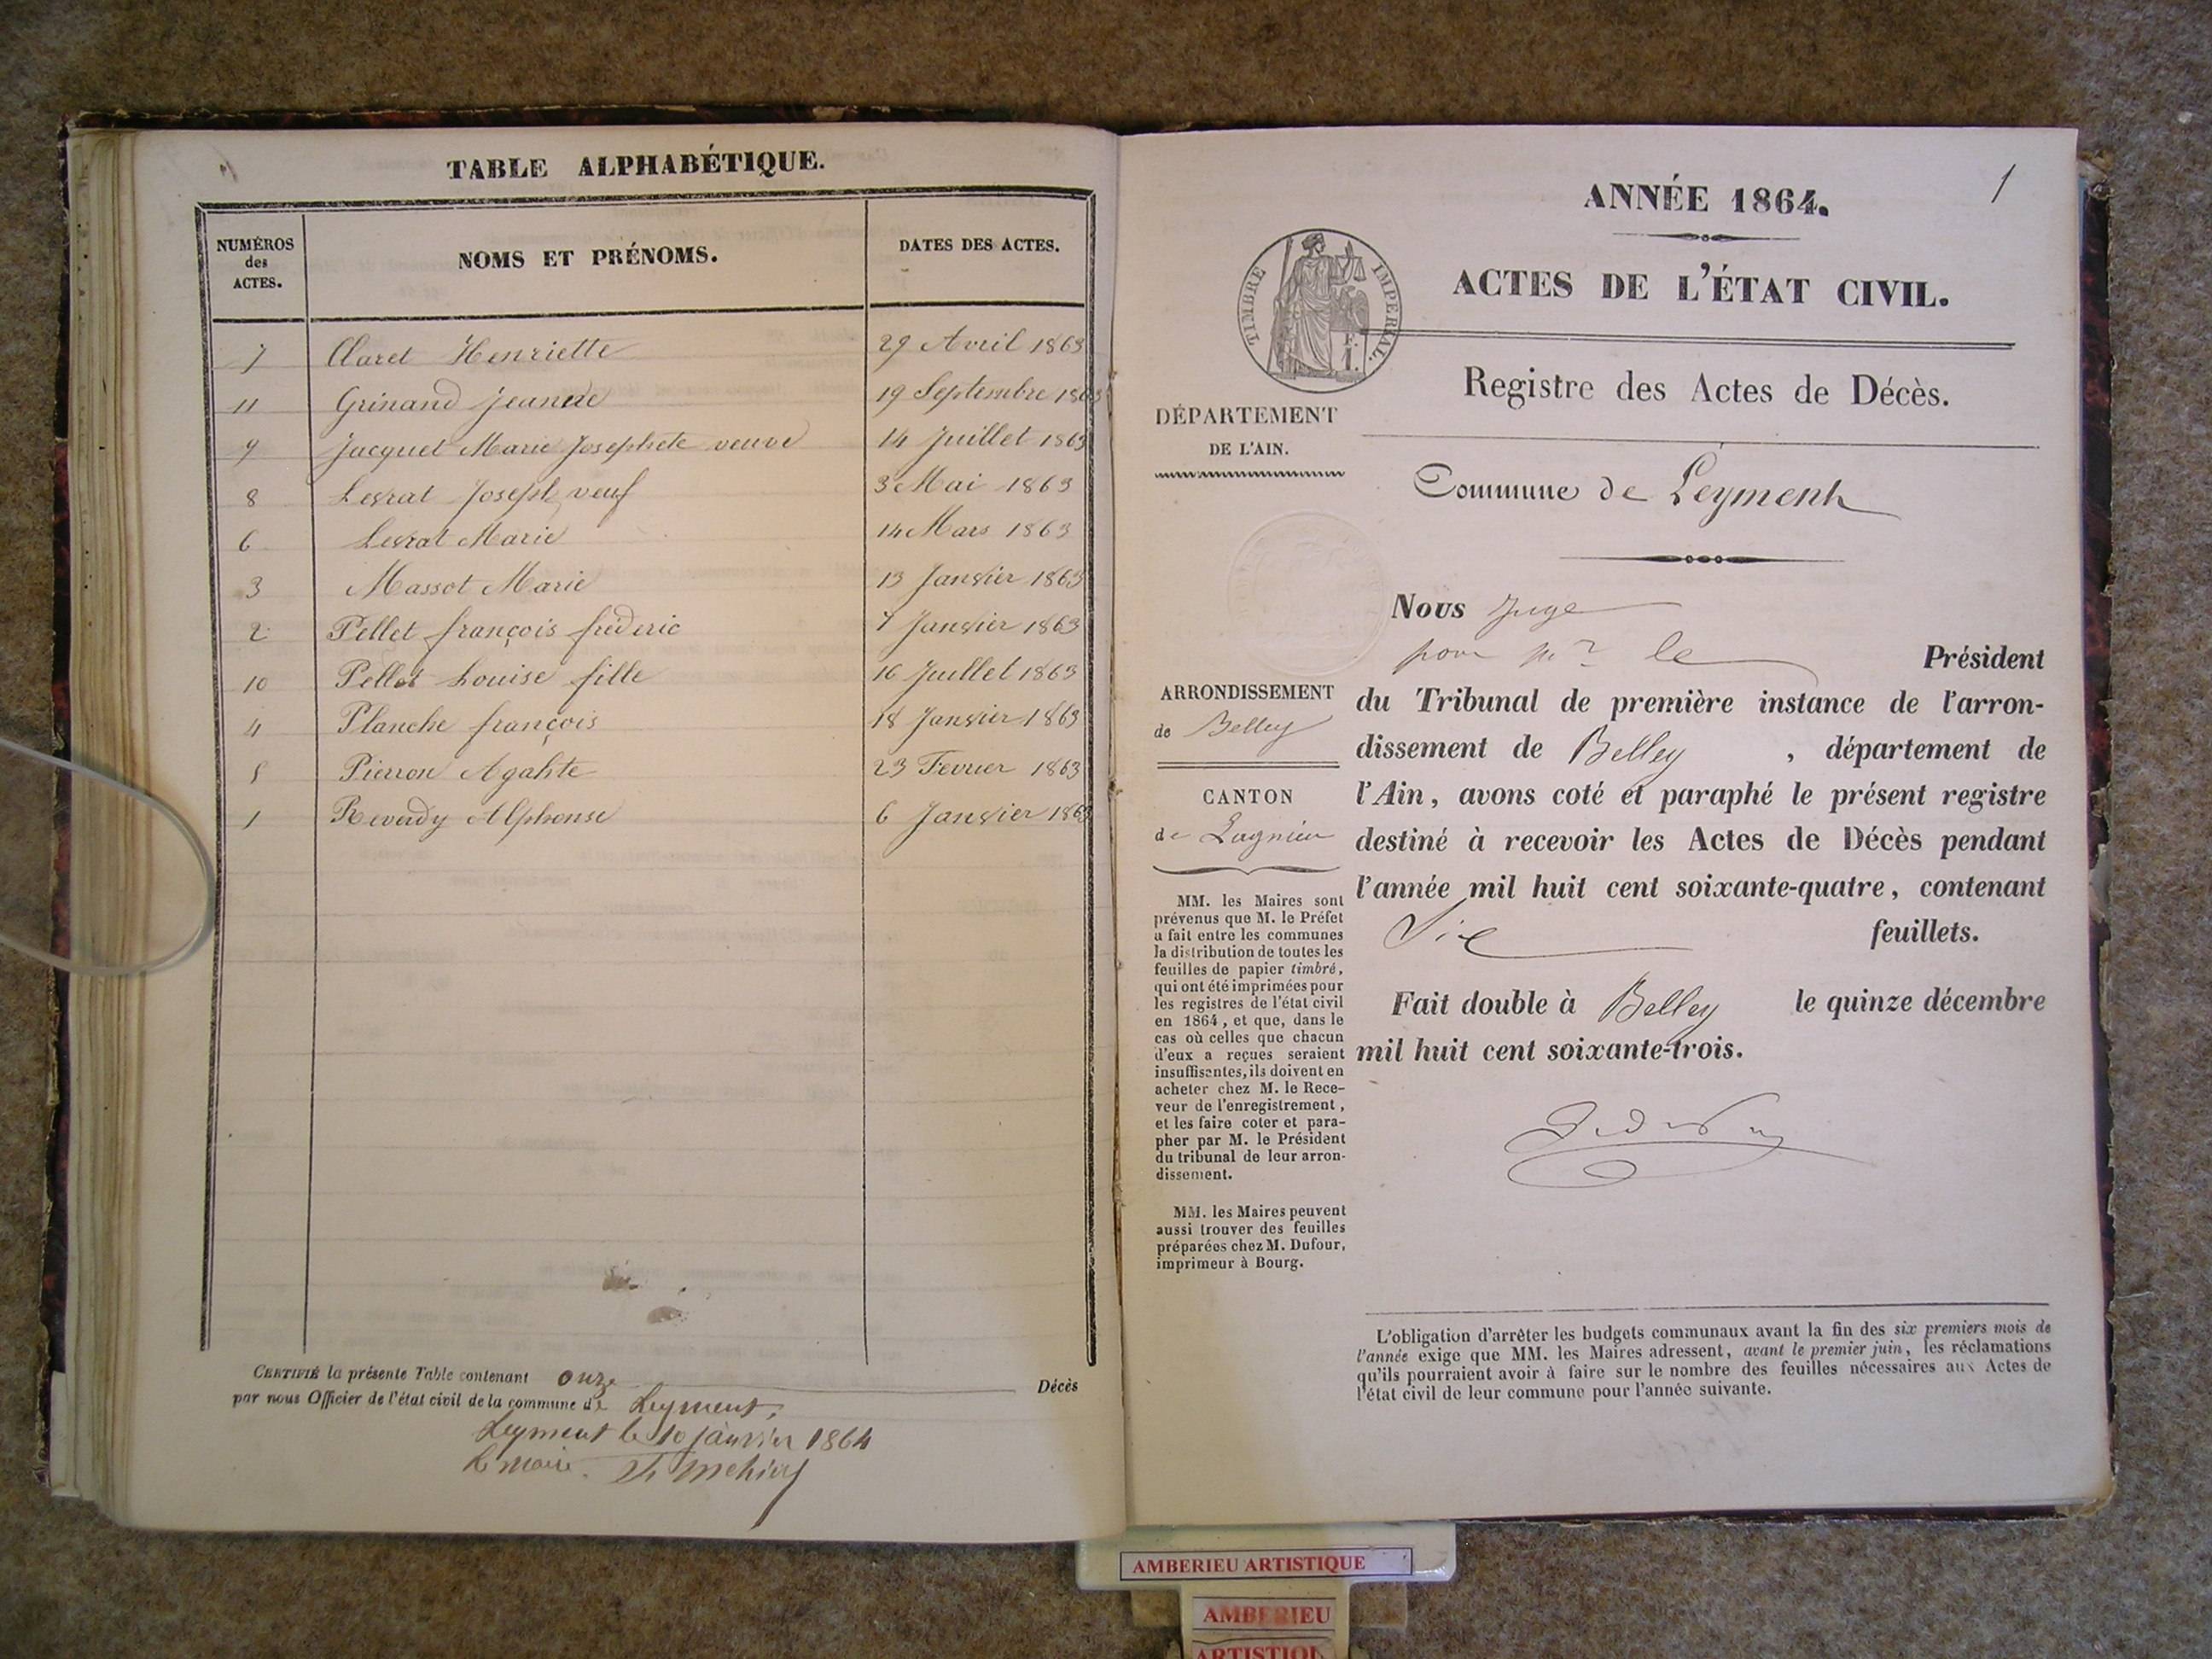 TABLE ALPHABÉTIQUE.
NUMÉROS des ACTES. NOMS ET PRÉNOMS. DATES DES ACTES.
7 Claret Henriette 29 Avril 1863
11 Grinand Jeanne 19 Septembre 1863
9 Jacquet Marie Josephete veuve 14 Juillet 1863
8 Levrat Joseph veuf 3 Mai 1863
6 Levrat Marie 14 Mars 1863
3 Massot Marie 13 Janvier 1863
2 Pellet françois frederic 7 Janvier 1863
10 Pellet Louise fille 16 Juillet 1863
4 Planche françois 18 Janvier 1863
5 Pierron Agahte 23 Fevrier 1863
1 Reverdy Alphonse 6 Janvier 1863
CERTIFIÉ la présente Table contenant onze Décès
par nous Officier de l'état civil de la commune de Leyment,
Leyment le 10 janvier 1864
le maire.
1
ANNÉE 1864.
TIMBRE IMPÉRIAL.
ACTES DE L'ÉTAT CIVIL.
Registre des Actes de Décès.
DÉPARTEMENT
DE L'AIN.
Commune de Leyment
Nous Juge
pour mr le Président
du Tribunal de première instance de l'arron-
dissement de Belley , département de
l'Ain, avons coté et paraphé le présent registre
destiné à recevoir les Actes de Décès pendant
l'année mil huit cent soixante-quatre, contenant
Six feuillets.
Fait double à Belley le quinze décembre
mil huit cent soixante-trois.
ARRONDISSEMENT
de Belley
CANTON
de Lagnieu
MM. les Maires sont
prévenus que M. le Préfet
a fait entre les communes
la distribution de toutes les
feuilles de papier timbré,
qui ont été imprimées pour
les registres de l'état civil
en 1864, et que, dans le
cas où celles que chacun
d'eux a reçues seraient
insuffisantes, ils doivent en
acheter chez M. le Rece-
veur de l'enregistrement,
et les faire coter et para-
pher par M. le Président
du tribunal de leur arron-
dissement.
MM. les Maires peuvent
aussi trouver des feuilles
préparées chez M. Dufour,
imprimeur à Bourg.
L'obligation d'arrêter les budgets communaux avant la fin des six premiers mois de
l'année exige que MM. les Maires adressent, avant le premier juin, les réclamations
qu'ils pourraient avoir à faire sur le nombre des feuilles nécessaires aux Actes de
l'état civil de leur commune pour l'année suivante.
AMBERIEU ARTISTIQUE
AMBERIEU
ARTISTIQU